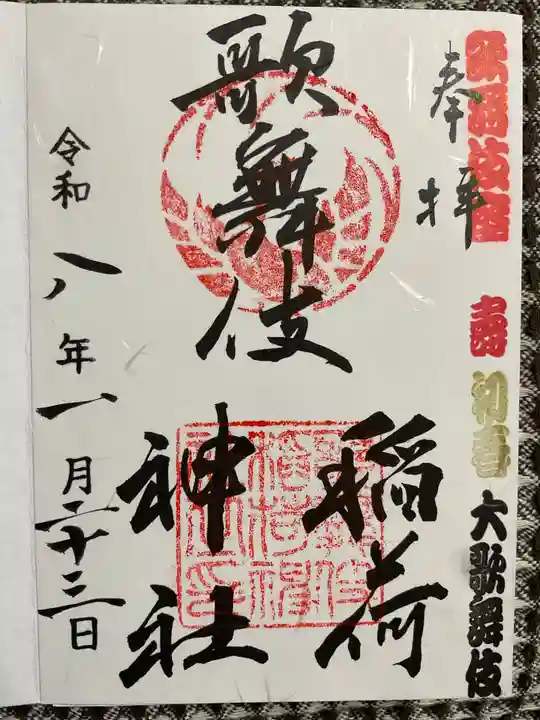 歌舞伎座
壽
初春
大歌舞伎
奉拝
歌舞伎
稲荷
神社
令和八年一月二十三日